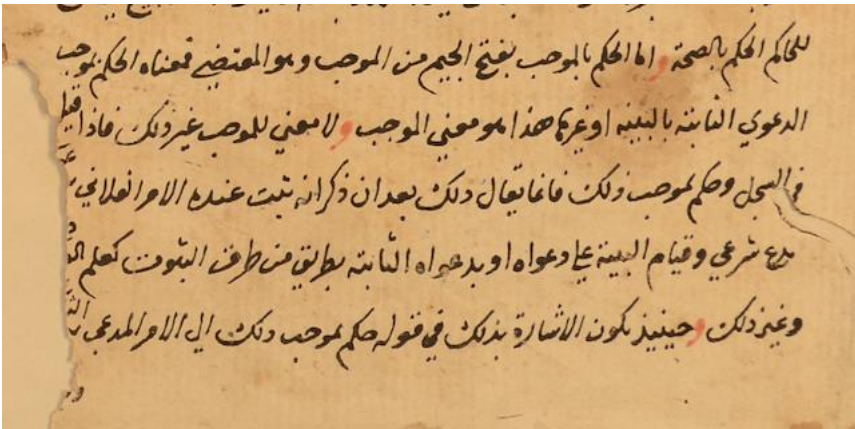 للحاكم الحكم بالصحة واما الحكم بالموجب بفتح الجيم من الموجب وهو المقتضى فمعناه الحكم بموجب
الدعوي الثابته بالبينه او غيرها هذا هو معني الموجب ولا معني للموجب غير ذلك فاذا قيل
في السجل وحكم بموجب ذلك فانما يقال ذلك بعد ان ذكر انه ثبت عنده الامر الفلاني
شرعي وقيام البينة علي دعواه او بدعواه الثابته بطريق من طرق الثبوت كعلم
وغير ذلك وحينيذ تكون الاشارة بذلك في قوله حكم بموجب ذلك الي الامر المدعي